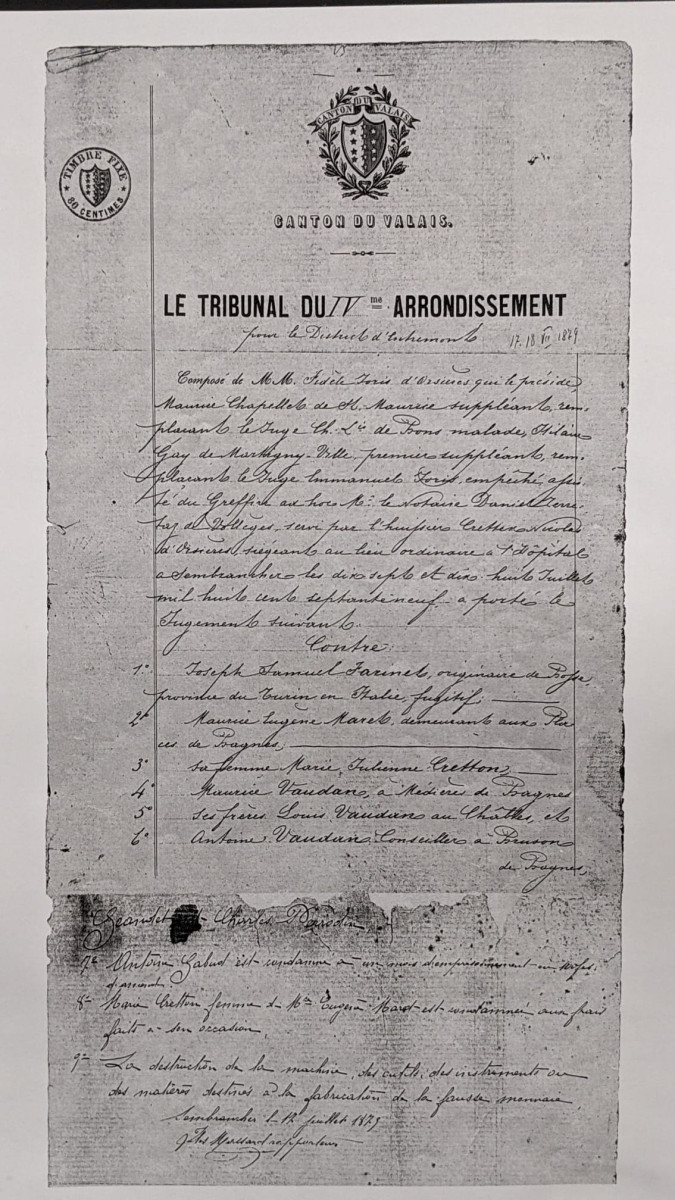 CANTON DU VALAIS
TIMBRE FIXE
80 CENTIMES
CANTON DU VALAIS.
LE TRIBUNAL DU IV me ARRONDISSEMENT
pour le District d'Entremont
17. 18 VII 1879
Composé de MM. Fidèle Joris d'Orsières qui le préside,
Maurice Chapellet de St. Maurice suppléant, rem-
plaçant le Juge Ch. Ls de Bons malade, Hilaire
Gay de Martigny-Ville premier suppléant, rem-
plaçant le Juge Emmanuel Joris, empêché, assis-
té du Greffier ad hoc Mr. le Notaire Daniel Terre-
taz de Vollèges, servi par l'huissier Crettex Nicolas
d'Orsières, siégeant au lieu ordinaire à l'Hôpital
à Sembrancher les dix sept et dix-huit Juillet
mil huit cent septante neuf a porté le
Jugement suivant.
Contre
1° Joseph Samuel Farinet, originaire de
province du Turin en Italie, fugitif;
2° Maurice Eugène Maret, demeurant aux Pla-
ces de Bagnes;
3° sa femme Marie, Julienne Cretton,
4° Maurice Vaudan, à Médières de Bagnes
5° Ses frères Louis Vaudan au Châbles, et
6° Antoine Vaudan Conseiller à Bruson
de Bagnes,
Charles
7° Antoine Gabud est condamné à un mois d'emprisonnement
8° Marie Cretton femme de Mce Eugène Maret est condamnée aux frais
faits à son occasion,
9° La destruction de la machine, des outils, des instruments ou
des matières destinés à la fabrication de la fausse monnaie
Sembrancher le 17 juillet 1879
rapporteur